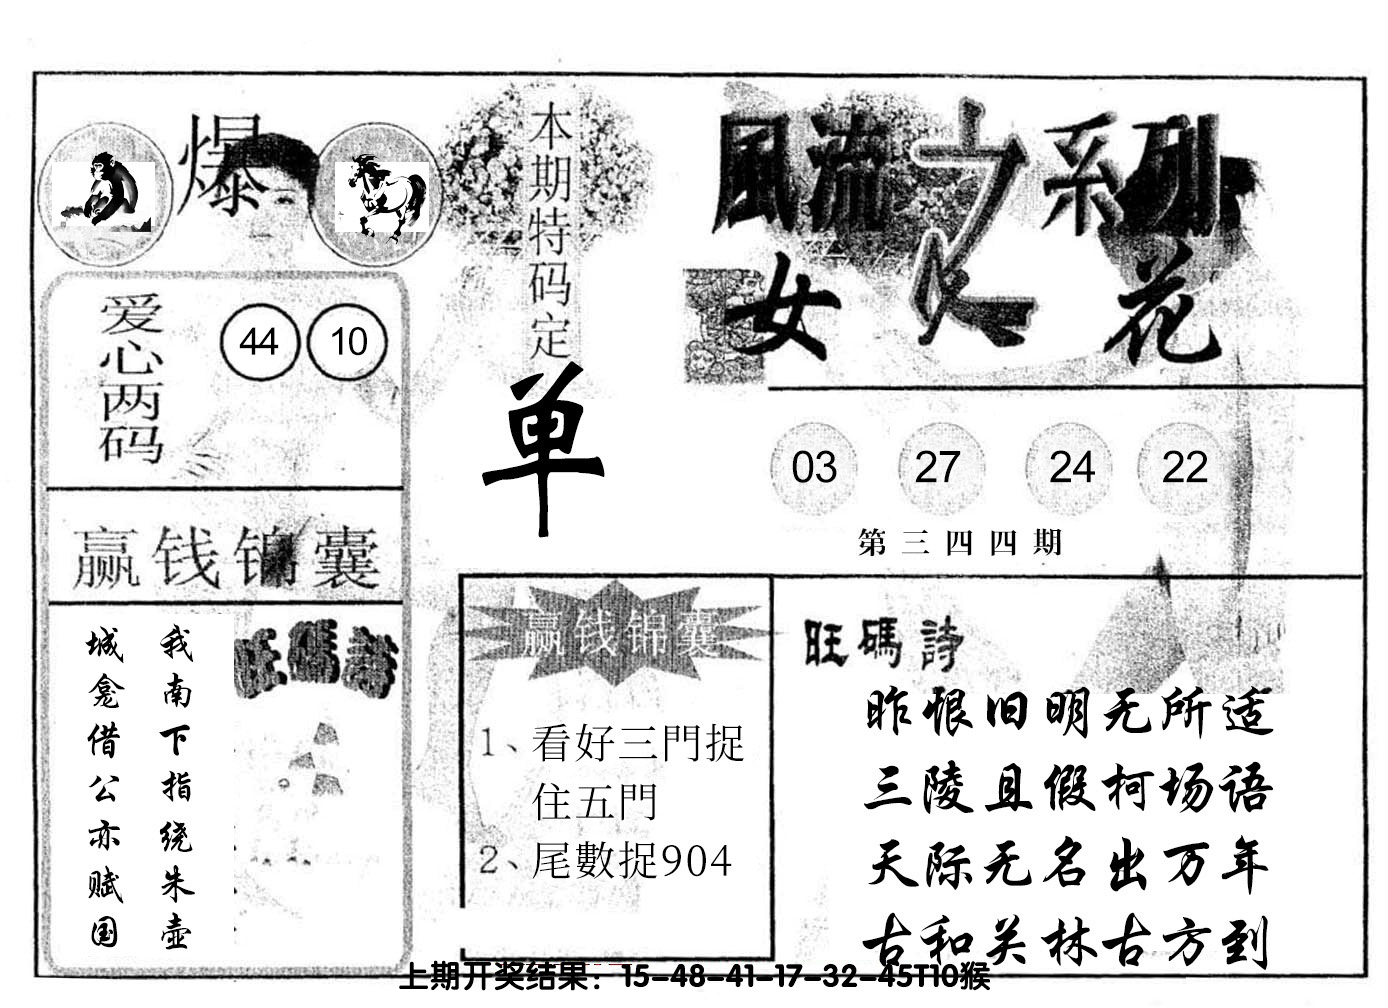 爆
本期特码定
单
風流之系列
女人花
爱心两码
44 10
03 27 24 22
第三四四期
赢钱锦囊
我南下指绕朱壶
城龛借公亦赋国
旺碼詩
赢钱锦囊
1、看好三門捉
住五門
2、尾數捉904
旺碼詩
昨恨旧明无所适
三陵且假柯场语
天际无名出万年
古和关林古方到
上期开奖结果：15-48-41-17-32-45T10猴